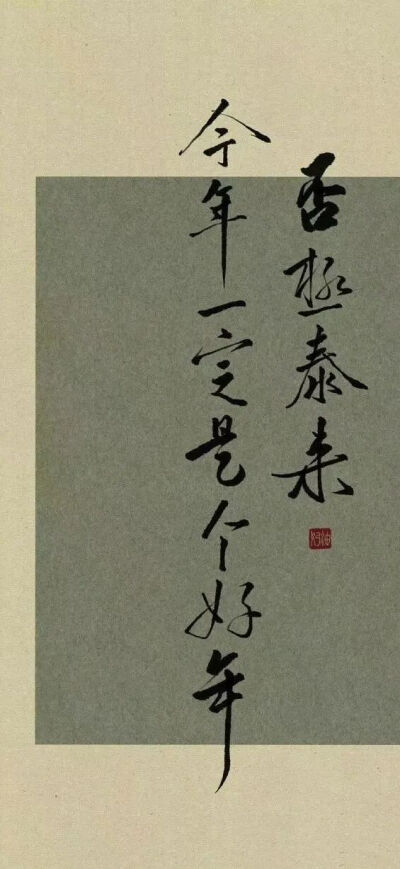 否極泰来
今年一定是个好年